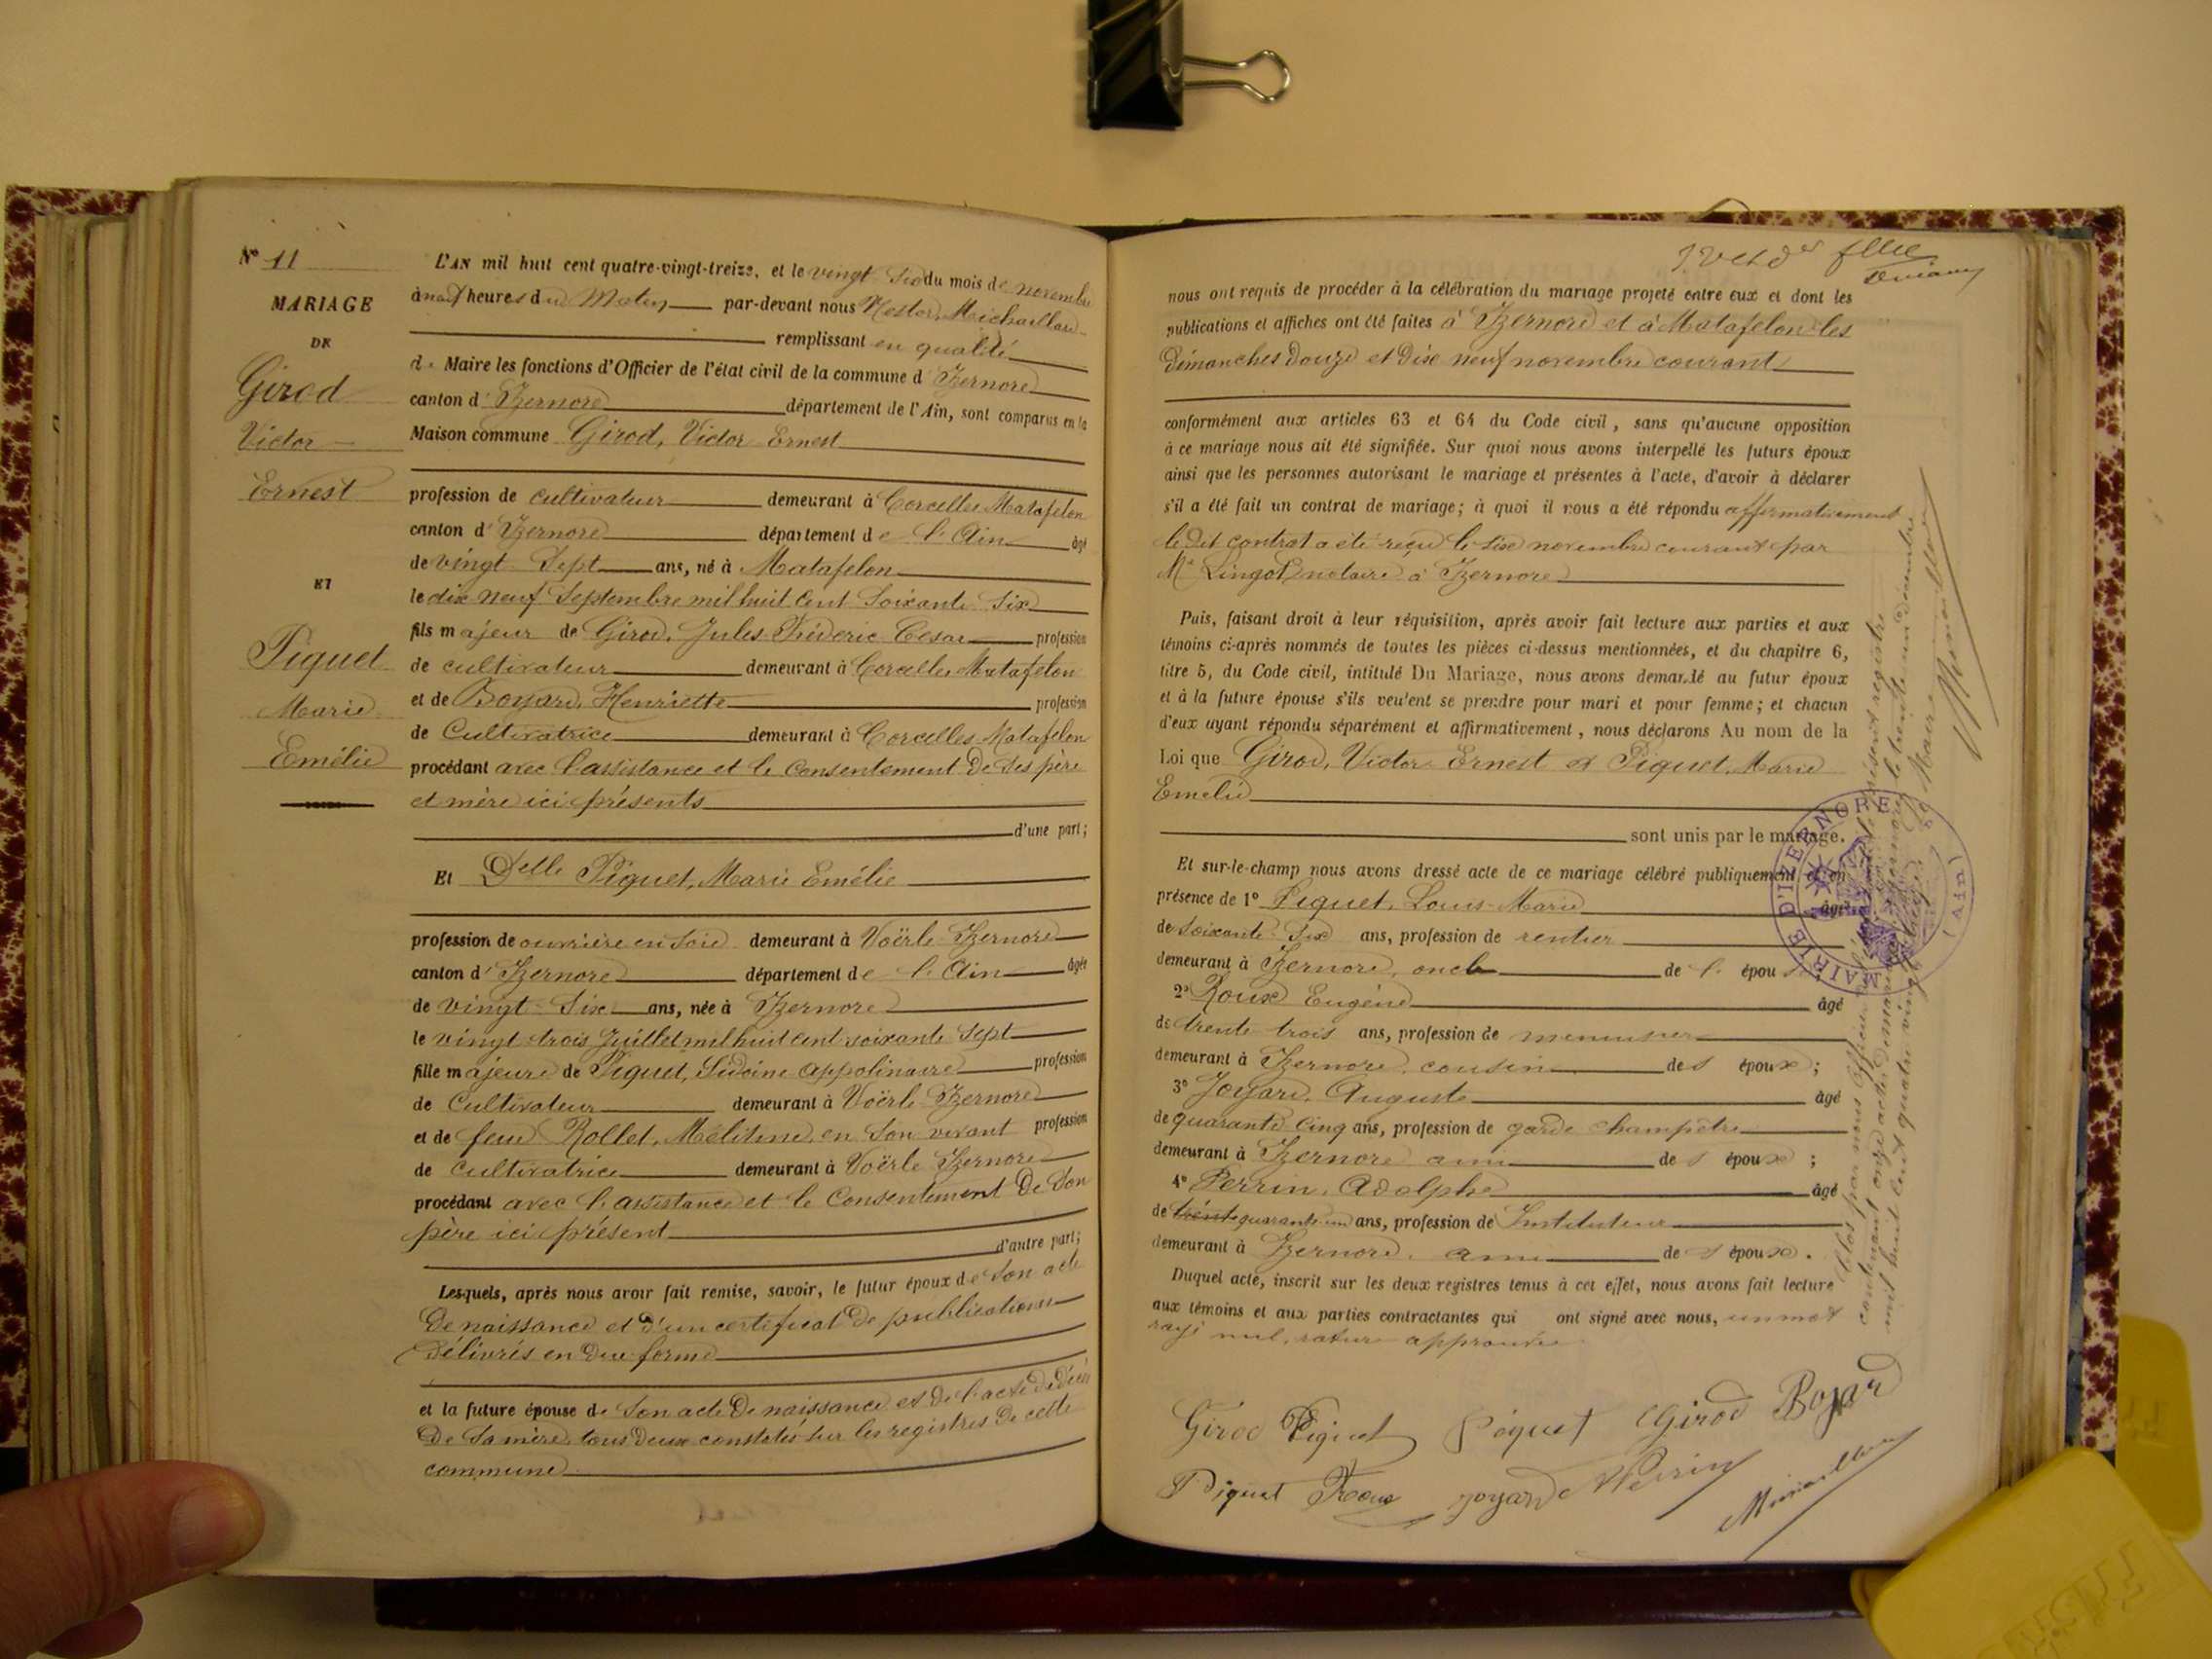 N° 11
MARIAGE
DE
Girod
Victor
Ernest
ET
Piguet
Marie
Emélie
L'AN mil huit cent quatre-vingt-treize, et le vingt Six du mois de novembre
à neuf heures du Matin par-devant nous Nestor Michaillard
remplissant en qualité
de Maire les fonctions d'Officier de l'état civil de la commune d'Izernore
canton d'Izernore département de l'Ain, sont comparus en la
Maison commune Girod, Victor Ernest
profession de cultivateur demeurant à Corcelles Matafelon
canton d'Izernore département de l'Ain âgé
de vingt Sept ans, né à Matafelon
le dix neuf Septembre mil huit cent Soixante Six
fils majeur de Girod, Jules Fréderic Cesar profession
de cultivateur demeurant à Corcelles Matafelon
et de Boyard, Henriette profession
de Cultivatrice demeurant à Corcelles Matafelon
procédant avec l'assistance et le Consentement De Ses père
et mère ici présents
d'une part;
Et Delle Piguet, Marie Emélie
profession de ouvrière en Soie demeurant à Voërle Izernore
canton d'Izernore département de l'Ain âgée
de vingt Six ans, née à Izernore
le vingt trois Juillet mil huit cent soixante Sept
fille majeure de Piguet, Sidoine Appolinaire profession
de Cultivateur demeurant à Voërle Izernore
et de feue Rollet, Mélitine, en Son vivant profession
de Cultivatrice demeurant à Voërle Izernore
procédant avec l'assistance et le Consentement De Son
père ici présent
d'autre part;
Lesquels, après nous avoir fait remise, savoir, le futur époux de Son acte
De naissance et D'un certificat De publications
Délivrés en Due forme
et la future épouse de Son acte De naissance et De l'acte De décès
De Sa mère, tous Deux constatés sur les registres De cette
commune
nous ont requis de procéder à la célébration du mariage projeté entre eux et dont les
publications et affiches ont été faites à Izernore et à Matafelon les
Dimanches Douze et Dix neuf novembre courant
conformément aux articles 63 et 64 du Code civil, sans qu'aucune opposition
à ce mariage nous ait été signifiée. Sur quoi nous avons interpellé les futurs époux
ainsi que les personnes autorisant le mariage et présentes à l'acte, d'avoir à déclarer
s'il a été fait un contrat de mariage; à quoi il nous a été répondu affirmativement
le Dit contrat a été reçu le Six novembre courant par
Me Lingot notaire à Izernore
Puis, faisant droit à leur réquisition, après avoir fait lecture aux parties et aux
témoins ci-après nommés de toutes les pièces ci-dessus mentionnées, et du chapitre 6,
titre 5, du Code civil, intitulé Du Mariage, nous avons demandé au futur époux
et à la future épouse s'ils veulent se prendre pour mari et pour femme; et chacun
d'eux ayant répondu séparément et affirmativement, nous déclarons Au nom de la
Loi que Girod, Victor Ernest et Piguet, Marie
Emélie
sont unis par le mariage.
Et sur-le-champ nous avons dressé acte de ce mariage célébré publiquement et en
présence de 1° Piguet, Louis Marie âgé
de Soixante Six ans, profession de rentier
demeurant à Izernore, oncle de l'épou
2° Roux Eugène âgé
de trente trois ans, profession de menuisier
demeurant à Izernore, cousin des époux;
3° Joyard, Auguste âgé
de quarante Cinq ans, profession de garde champêtre
demeurant à Izernore ami des époux;
4° Perrin, Adolphe âgé
de trente quarante un ans, profession de Instituteur
demeurant à Izernore, ami des époux.
Duquel acte, inscrit sur les deux registres tenus à cet effet, nous avons fait lecture
aux témoins et aux parties contractantes qui ont signé avec nous, un mot
rayé nul, rature approuvée
Girod Piguet Piguet Girod Boyard
Piguet Roux Joyard Perrin
Michaillard
Clos par nous Officier de l'état civil le présent registre
contenant onze actes De mariage Izernore le trente un Décembre
mil huit cent quatre vingt treize
Le Maire
MAIRIE D'IZERNORE
(Ain)